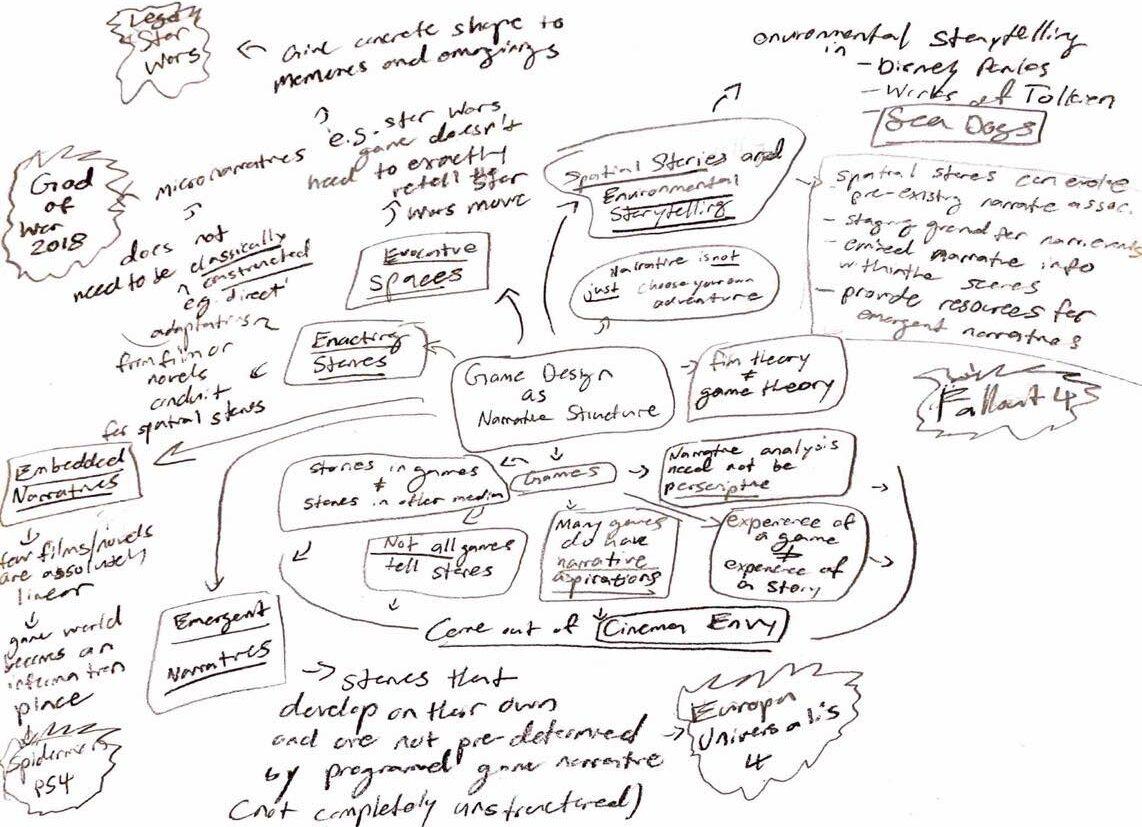 Lego
Star
Wars
← Give concrete shape to
memories and imaginings
↑
e.g. Star Wars
game doesn't
need to exactly
retell the
Star
Wars movie
Evocative
Spaces
environmental storytelling
in
- Disney Parks
- Works of Tolkien
Sea Dogs
Spatial Stories and
Environmental
Storytelling
→ spatial stories can evoke
- pre-existing narrative assoc.
- staging ground for narr. events
- embed narrative info
within the scenes
- provide resources for
emergent narratives
Fallout 4
God
of
War
2018
micronarratives
does not
need to be classically
constructed
e.g. direct
adaptations
from film or
novels
conduit
for spatial stories
Enacting
Stories
Narrative is not
just choose your own
adventure
Game Design
as
Narrative Structure
→ film theory
≠
game theory
Games
Stories in games
≠
stories in other media
→ Narrative analysis
need not be
perscriptive
Not all games
tell stories
Many games
do have
narrative
aspirations
experience of
a game
≠
experience of
a story
Come out of Cinema Envy
Embedded
Narratives
few films/novels
are absolutely
linear
game world
becomes an
information
place
Spiderman
PS4
Emergent
Narratives
→ stories that
develop on their own
and are not pre-determined →
by programed game narrative
(not completely unstructured)
Europa
Universalis
4